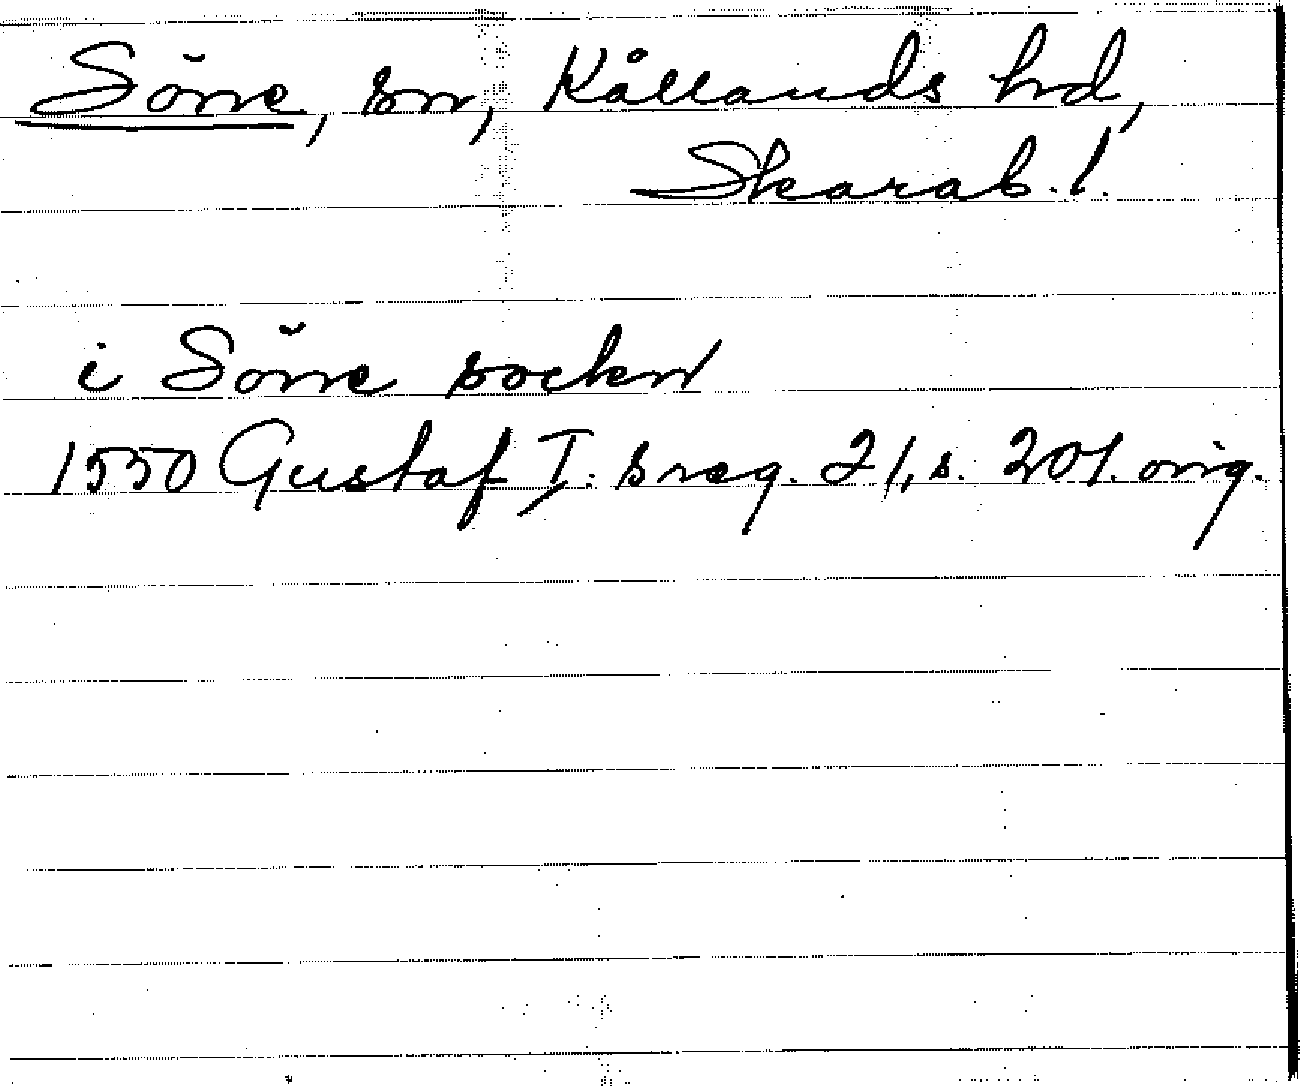 Söne, sn, Kållands hd,
Skarab. l.
i Söne socken
1550 Gustaf I:s reg. 21, s. 201. orig.